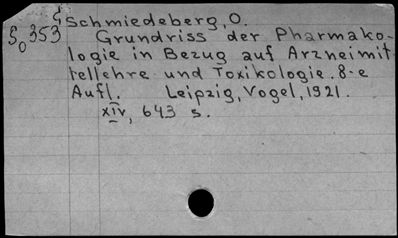 Schmiedeberg, O.
S₀353 Grundriss der Pharmako-
logie in Bezug auf Arzneimit
tellehre und Toxikologie. 8-e
Aufl. Leipzig, Vogel, 1921.
XIV, 643 s.